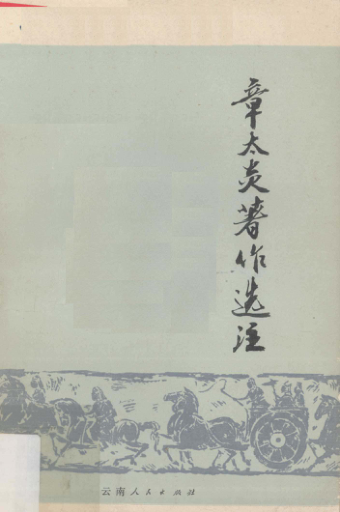 章太炎著作选注
云南人民出版社